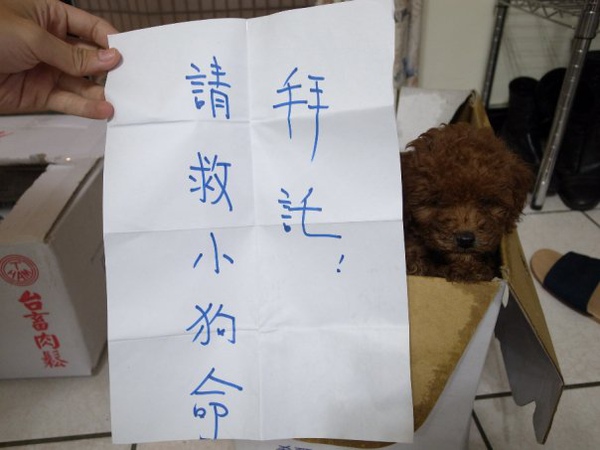 拜託！
請救小狗命
台畜肉鬆